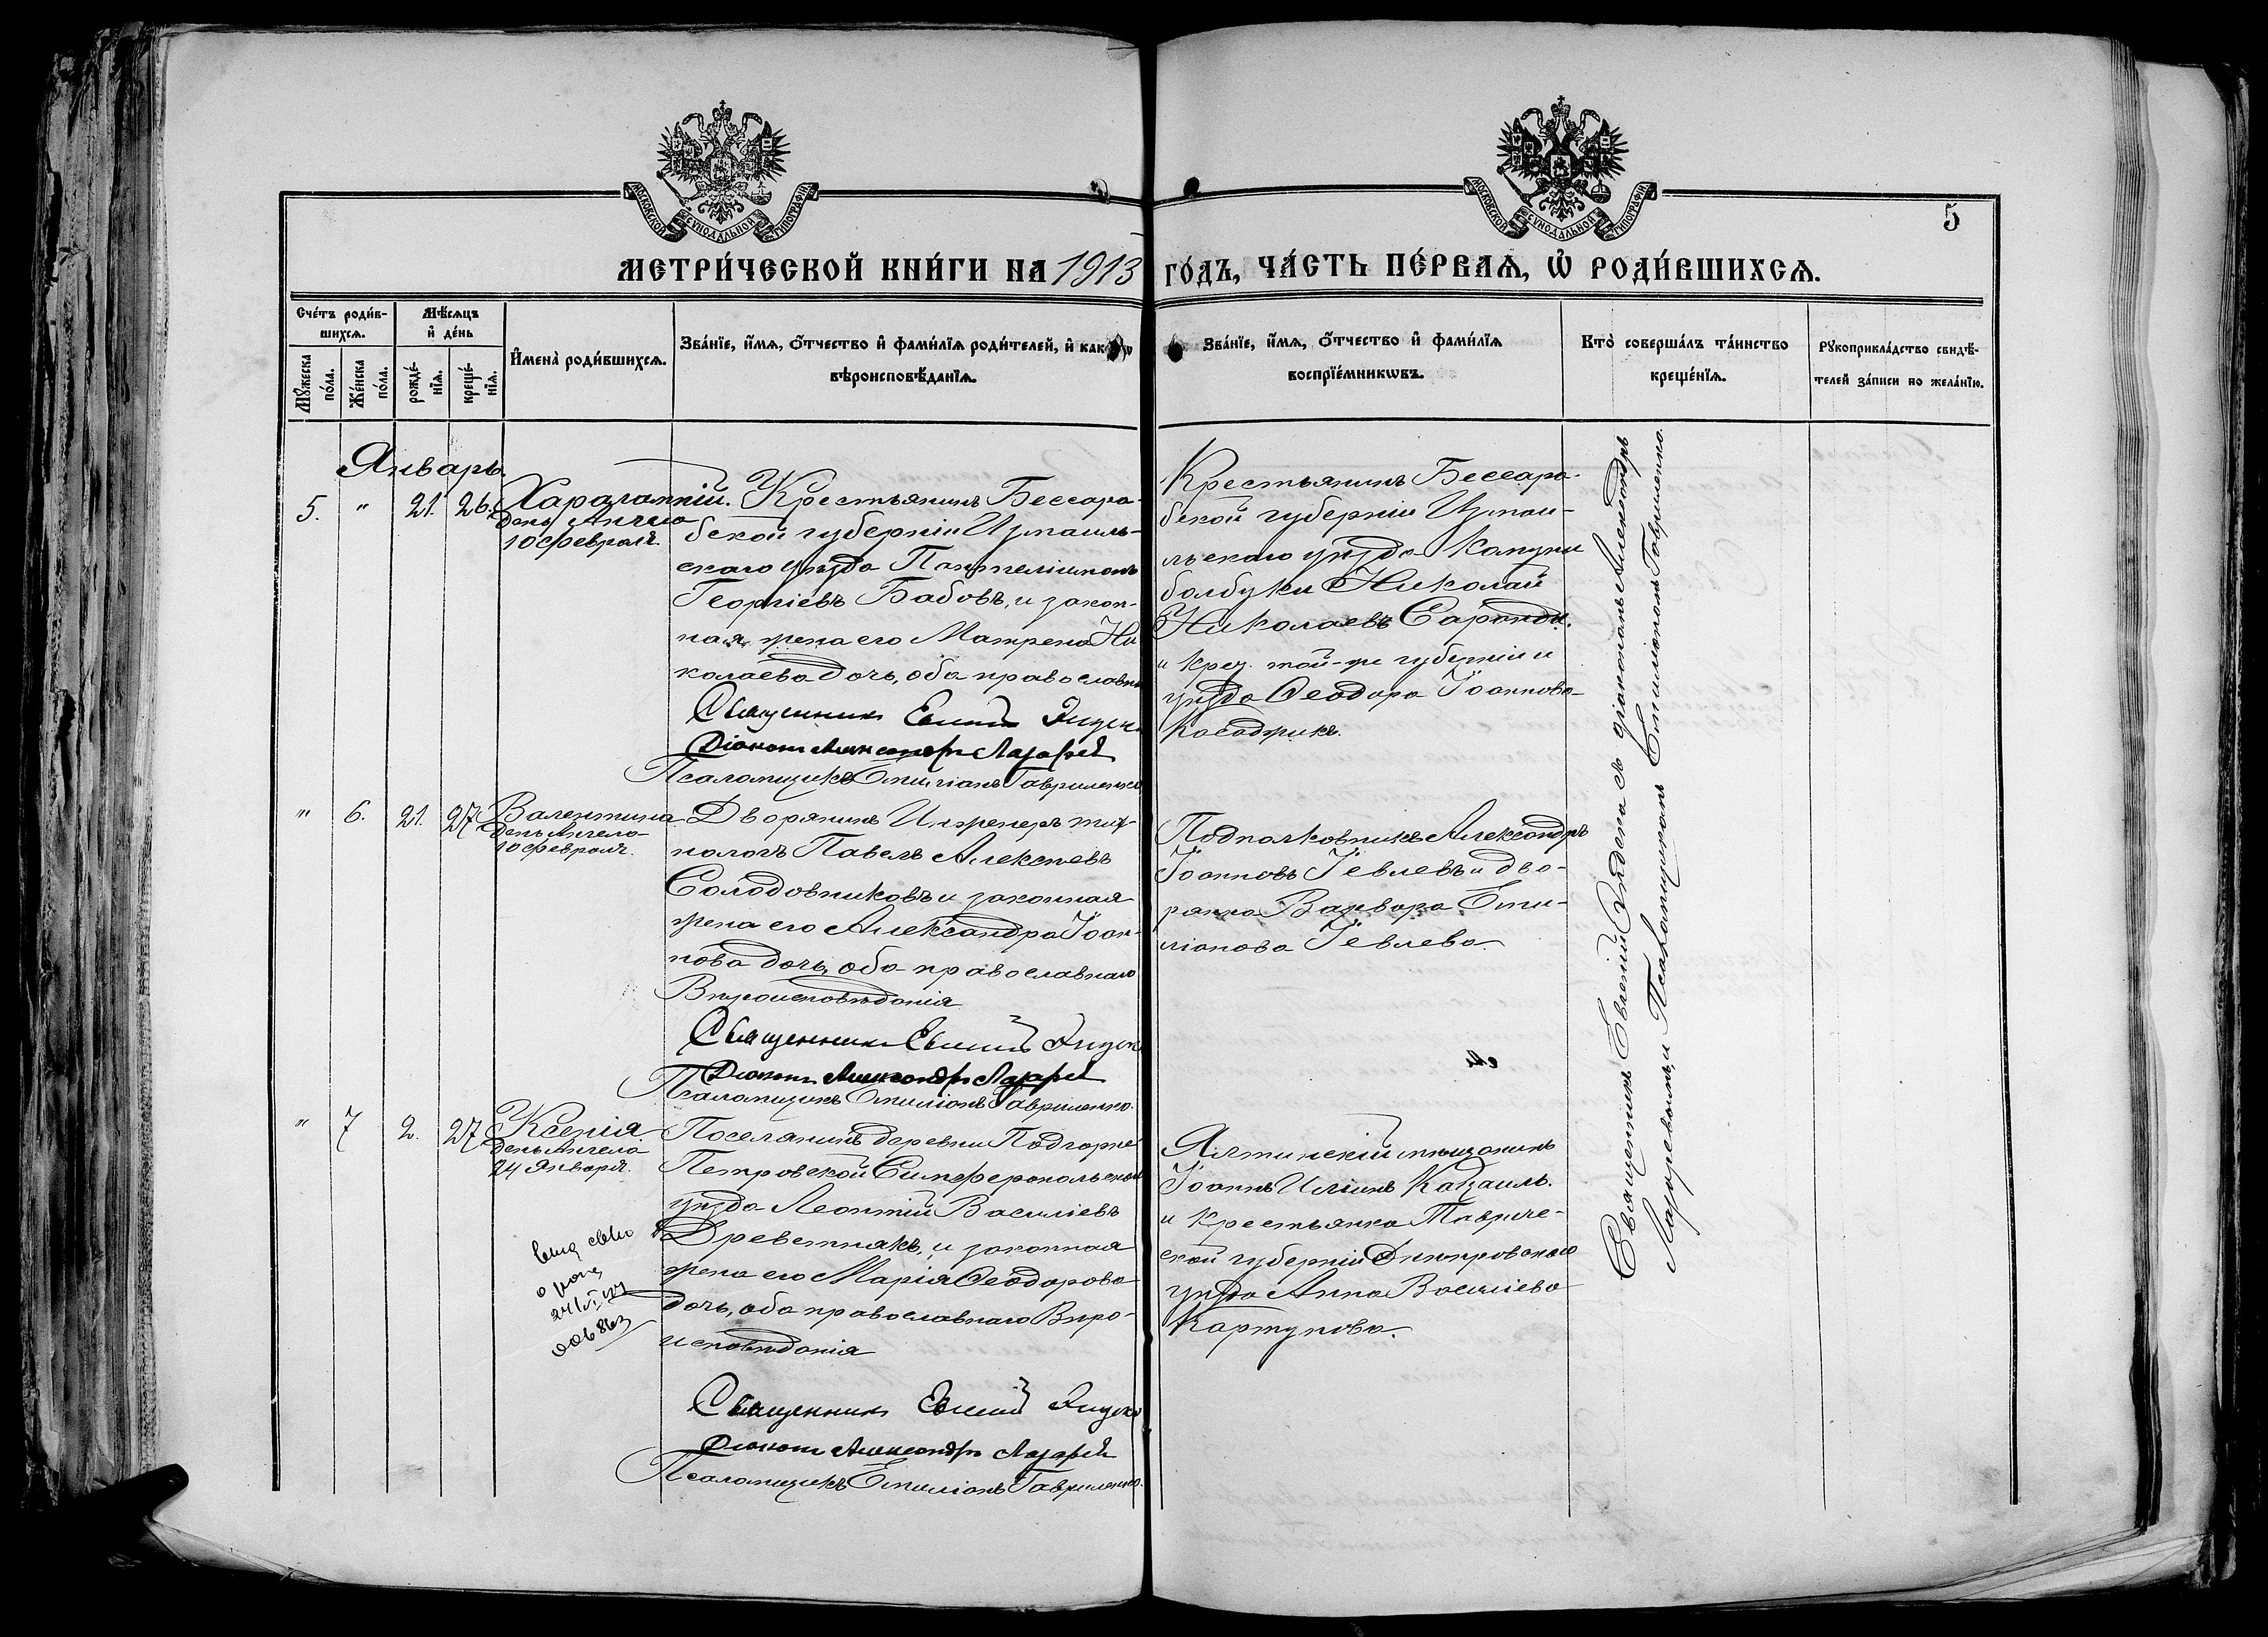 МОСКОВСКОЙ СѴНОДАЛЬНОЙ ТИПОГРАФІИ
МОСКОВСКОЙ СѴНОДАЛЬНОЙ ТИПОГРАФІИ
5
МЕТРИ́ЧЕСКОЙ КНИ́ГИ НА 1913 ГО́ДЪ, ЧА́СТЬ ПЕ́РВАѦ, Ѡ҆ РОДИ́ВШИХСѦ.
Сче́тъ роди́в-
шихсѧ.
Мѣ́сѧцъ
и҆ де́нь
Мꙋ́жеска
по́ла.
Же́нска
по́ла.
рожде́-
нїѧ.
креще́-
нїѧ.
И҆мена̀ роди́вшихсѧ.
Зва́нїе, и҆́мѧ, ѻ҆́тчество и҆ фами́лїѧ роди́телей, и҆ како́гѡ
вѣроисповѣ́данїѧ.
Зва́нїе, и҆́мѧ, ѻ҆́тчество и҆ фами́лїѧ
воспрїе́мникѡвъ.
Кто̀ соверша́лъ та́инство
креще́нїѧ.
Рꙋкоприкла́дство свидѣ́-
телей за́писи по жела́нїю.
Январь.
5. " 21. 26.
Харалампій.
день Ангела
10 февраля.
Крестьянинъ Бессара-
бской губерніи Измаиль-
скаго уѣзда Пантелеимонъ
Георгіевъ Бабовъ, и закон-
ная жена его Матрена Ни
колаева дочь, оба православн
Священникъ Евгеній Эндека
Діаконъ Александръ Лазарев
Псаломщикъ Емиліанъ Гавриленко
Крестьянинъ Бессара-
бской губерніи Измаи-
льскаго уѣзда
болбуки Николай
Николаевъ
и крес. той-же губерніи и
уѣзда Ѳеодора Іоаннова
" 6. 21. 27
Валентина
день Ангела
10 февраля.
Дворянинъ Инженеръ тех-
нологъ Павелъ Алексѣевъ
Солодовниковъ и законная
жена его Александра Іоан-
нова дочь, оба православнаго
Вѣроисповѣданія
Священникъ Евгеній Эндека
Діаконъ Александръ Лазарев
Псаломщикъ Емиліанъ Гавриленко.
Подполковникъ Александръ
Іоанновъ Іевлевъ и дво-
рянка Варвара Еми-
ліанова Іевлева
" 7 2. 27
Ксенія
день Ангела
24 Января.
Поселянинъ деревни Подгорне
Петровской Симферопольскаго
уѣзда Леонтій Василіевъ
Древетнякъ, и законная
жена его Марія Ѳеодорова
дочь, оба православнаго Вѣро-
исповѣданія
Священникъ Евгеній Эндека
Діаконъ Александръ Лазарев
Псаломщикъ Емиліанъ Гавриленко.
Ялтинскій мѣщанинъ
Іоаннъ Иліинъ
и Крестьянка Тавриче-
ской губерніи Днѣпровскаго
уѣзда Анна Василіева
Картунова.
Священникъ Евгеній Эндека съ діакономъ Александръ
Лазаревымъ, и Псаломщикомъ Емиліаномъ Гавриленко.